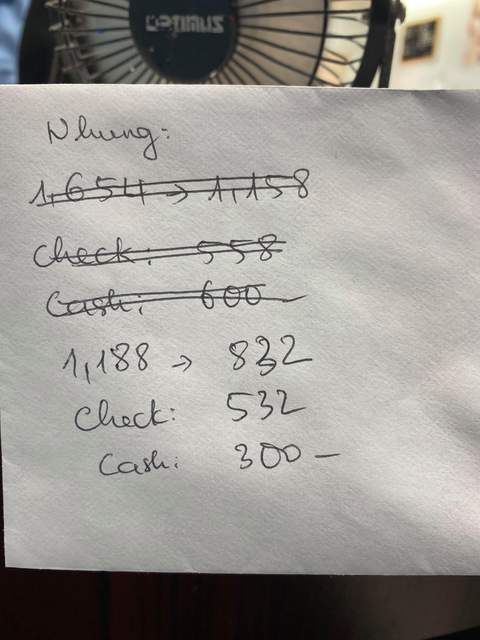 OPTIMUS
Nhung:
1,654 → 1,158
Check: 558
Cash: 600
1,188 → 832
Check: 532
Cash: 300 —